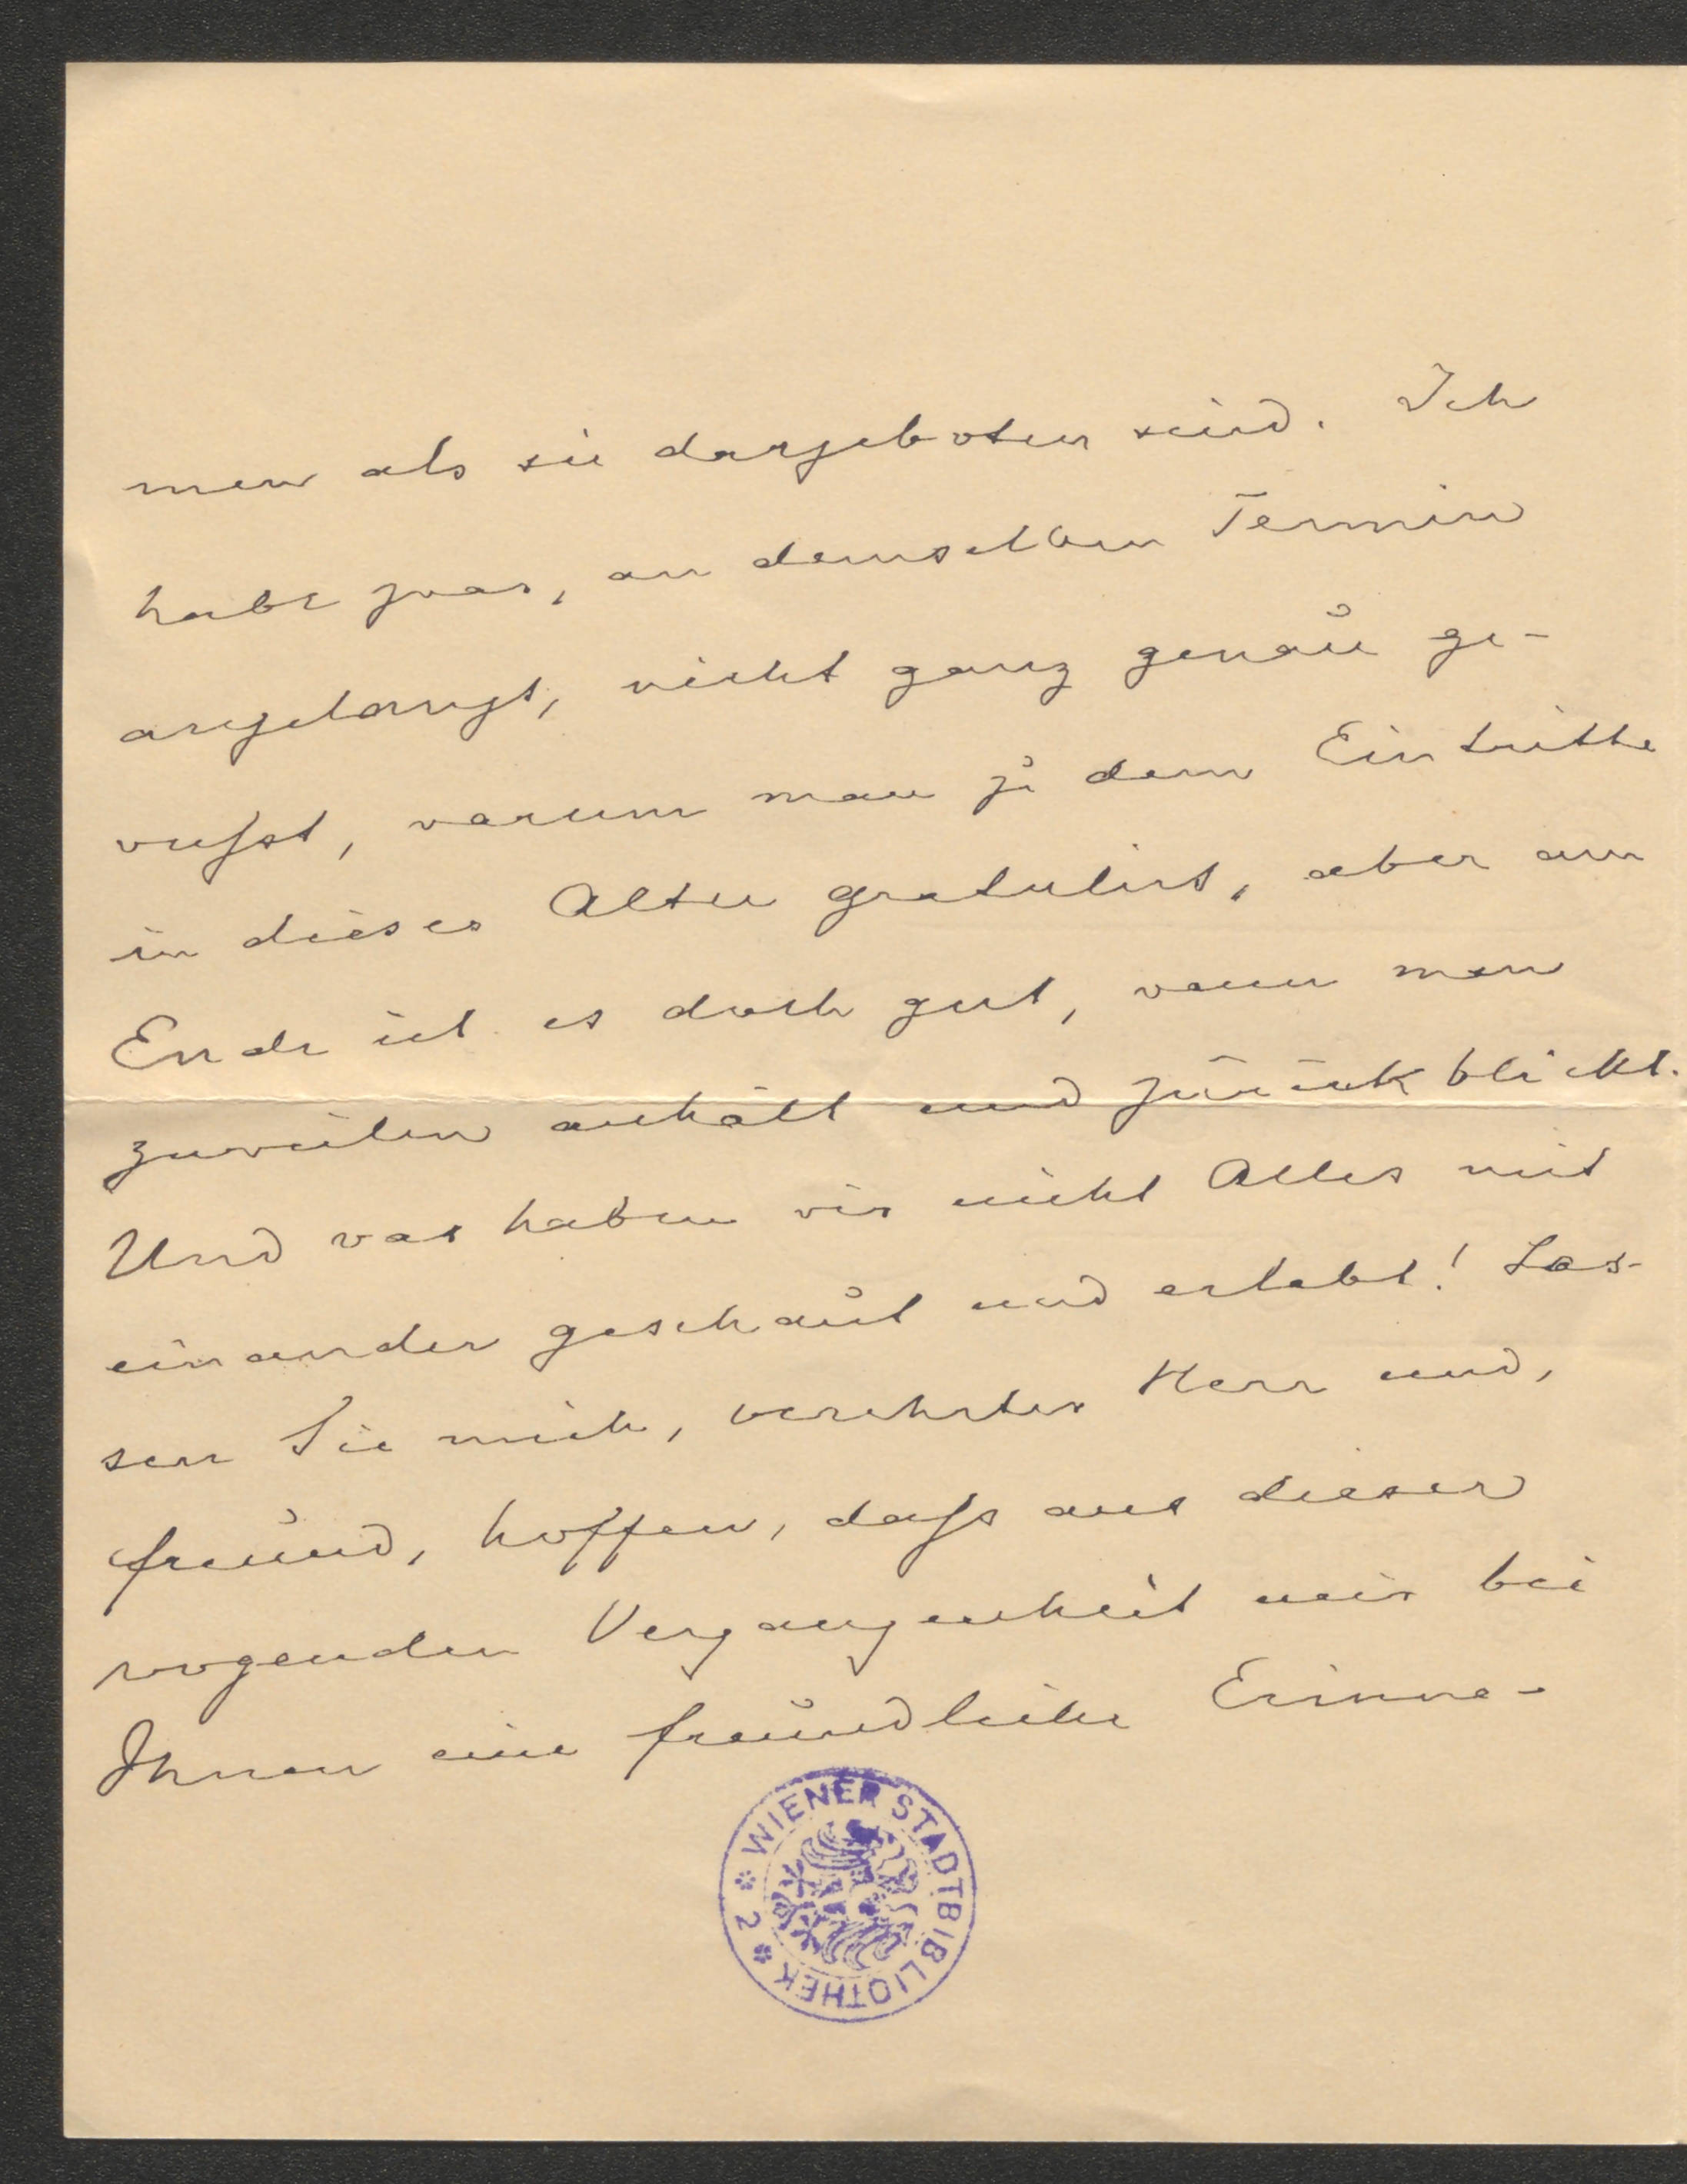 men als sie dargeboten sind. Ich
habe zwar, an demselben Termin
angelangt, nicht ganz genau ge-
wußt, warum man zu dem Eintritte
in dieses Alter gratulirt, aber am
Ende ist es doch gut, wenn man
zuweilen anhält und zurückblickt.
Und was haben wir nicht Alles mit
einander geschaut und erlebt! Las-
sen Sie mich, verehrter Herr und,
Freund, hoffen, daß aus dieser
wogenden Vergangenheit mir bei
Ihnen eine freundliche Erinne-
* WIENER STADTBIBLIOTHEK * 2